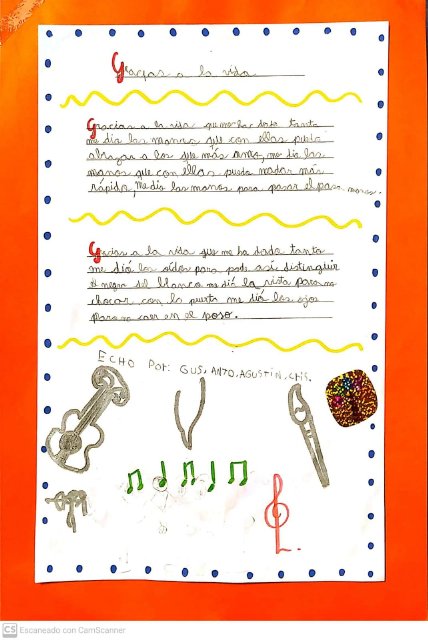 Gracias a la vida
Gracias a la vida que me ha dado tanto
me dio las manos que con ellas pueda
abrazar a los que más amo, me dio las
manos que con ellas pueda nadar más
rápido, me dio las manos para pasar el pasa manos.
Gracias a la vida que me ha dado tanto
me dió los oídos para pode así distinguir
el negro del blanco me dió la vista para no
chocar con la puerta me dió los ojos
para no caer en el poso.
ECHO POR: GUS, ANTO, AGUSTIN, CRIS.
CS Escaneado con CamScanner